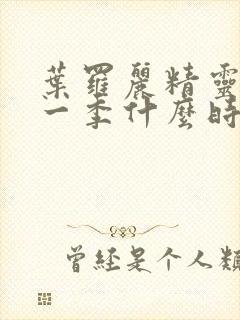 葉羅麗精靈
一季什麼時
曾經是个人類